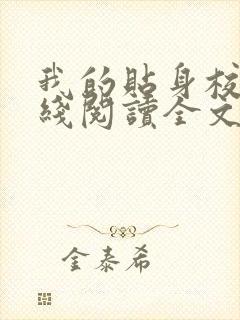 我的貼身校
綫閱讀全文
金泰希